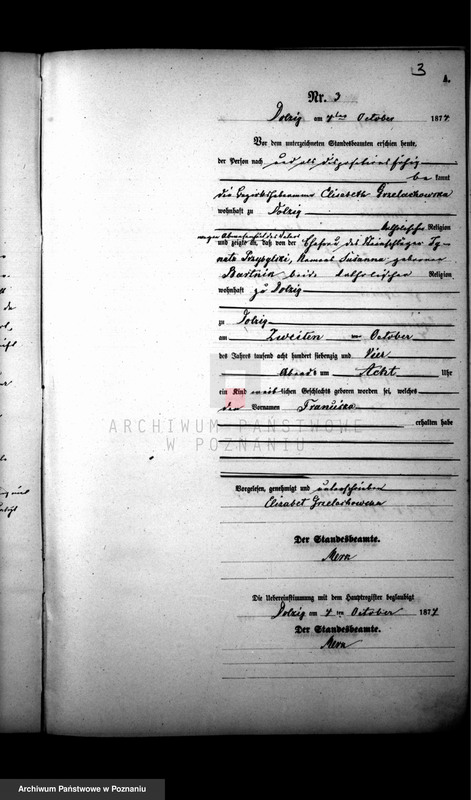 3
A.
Nr. 3
Dolzig am 4ten October 1874
Vor dem unterzeichneten Standesbeamten erschien heute,
der Person nach und als dispositionsfähig
be kannt
die Bezirkshebamme Elisabeth Grzelachowska
wohnhaft zu Dolzig
katholischer Religion
wegen Abwesenheit des Vaters
und zeigte an, daß von der Ehefrau des Steinschläger Ig-
natz Przybylski, Namens Susanna geborene
Bartnik beide katholischer Religion
wohnhaft zu Dolzig
zu Dolzig
am Zweiten October
des Jahres tausend acht hundert siebenzig und Vier
Abends um Acht Uhr
ein Kind weiblichen Geschlechts geboren worden sei, welches
den Vornamen Franziska
erhalten habe
ARCHIWUM PAŃSTWOWE
W POZNANIU
Vorgelesen, genehmigt und unterschrieben
Elisabet Grzelachowska
Der Standesbeamte.
Die Uebereinstimmung mit dem Hauptregister beglaubigt
Dolzig am 4 ten October 1874
Der Standesbeamte.
Archiwum Państwowe w Poznaniu